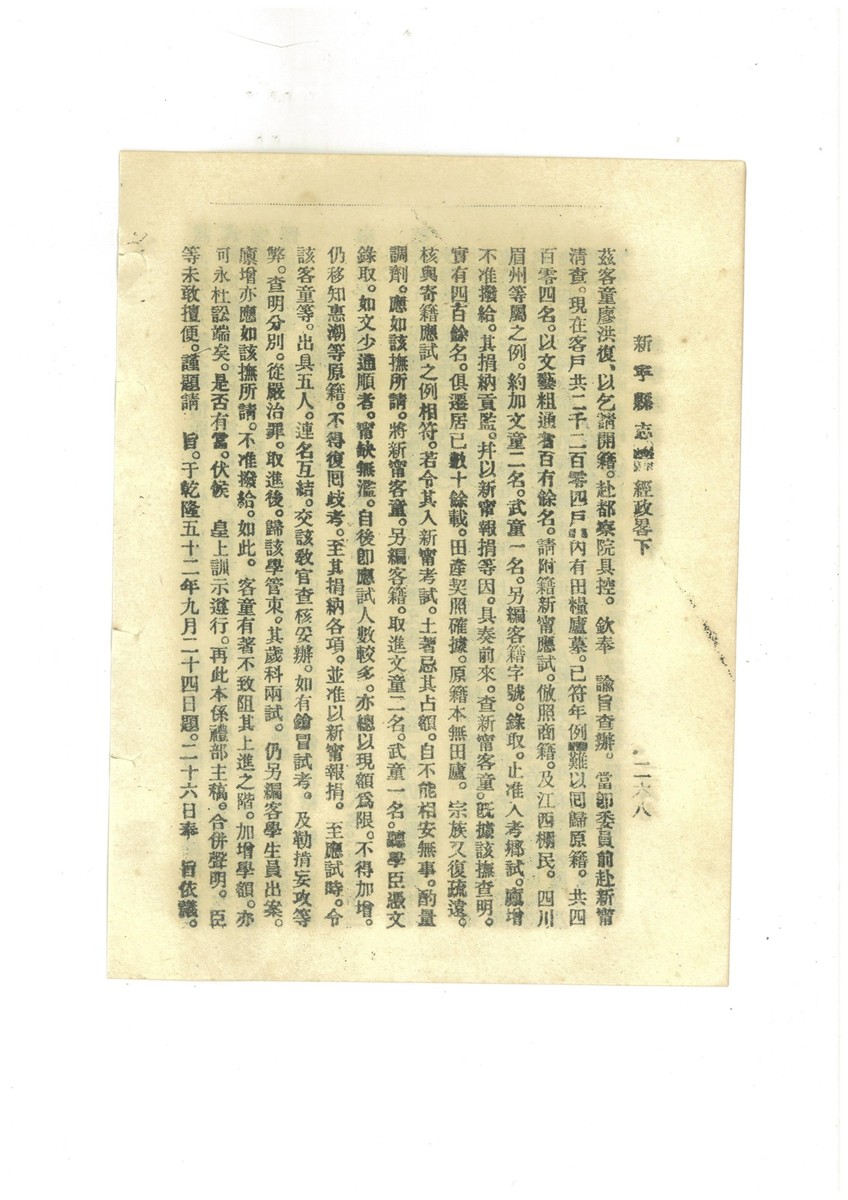 新寧縣志 經政畧下 二六八
茲客童廖洪復、以乞請開籍。赴都察院具控。 欽奉 諭旨查辦。 當卽委員前赴新甯
清查。現在客戶共二千二百零四戶。內有田糧廬墓。已符年例。難以囘歸原籍。 共四
百零四名。以文藝粗通者百有餘名。請附籍新甯應試。倣照商籍。及江西棚民。 四川
眉州等屬之例。約加文童二名。武童一名。另編客籍字號。錄取。止准入考鄉試。廩增
不准撥給。其捐納貢監。幷以新甯報捐等因。具奏前來。查新甯客童。旣據該撫查明。
實有四百餘名。俱遷居已數十餘載。田產契照確據。原籍本無田廬。 宗族又復疏遠。
核與寄籍應試之例相符。若令其入新甯考試。土著忌其占額。自不能相安無事。酌量
調劑。應如該撫所請。將新甯客童。另編客籍。取進文童二名。武童一名。聽學臣憑文
錄取。如文少通順者。甯缺無濫。自後卽應試人數較多。亦總以現額爲限。不得加增。
仍移知惠潮等原籍。不得復囘歧考。至其捐納各項。並准以新甯報捐。 至應試時。令
該客童等。出具五人。連名互結。交該敎官查核妥辦。如有鎗冒試考。 及勒揹妄攻等
弊。查明分別。從嚴治罪。取進後。歸該學管束。其歲科兩試。 仍另編客學生員出案。
廩增亦應如該撫所請。不准撥給。如此。 客童有著不致阻其上進之階。加增學額。亦
可永杜訟端矣。是否有當。伏候 皇上訓示遵行。再此本係禮部主稿。合併聲明。 臣
等未敢擅便。謹題請 旨。于乾隆五十二年九月二十四日題。二十六日奉 旨依議。